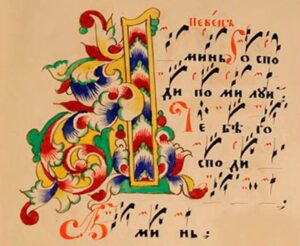 Певецъ
минь Госпо
ди помилуй:
Тебѣ го
споди
Аминь: